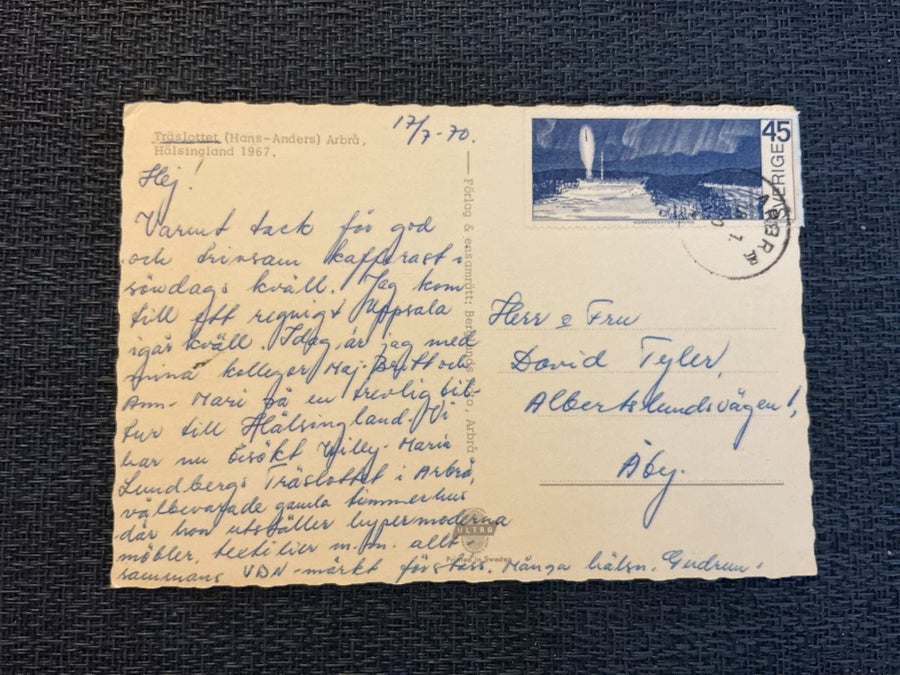 Träslottet (Hans-Anders) Arbrå,
Hälsingland 1967.
17/7-70.
Hej!
Varmt tack för god
och trivsam kafferast i
söndags kväll. Jag kom
till ett regnigt Uppsala
igår kväll. Idag är jag med
mina kollegor Maj-Britt och
Ann-Mari på en trevlig bil-
tur till Hälsingland. Vi
har nu besökt Willy Maria
Lundbergs Träslottet i Arbrå,
välbevarade gamla timmerhus
där hon utställer hypermoderna
möbler, textilier m.m. allt-
sammans VDN-märkt förstås. Många hälsn. Gudrun.
Förlag & ensamrätt: Berglunds Arbrå
ULTRA
Printed in Sweden
45
SVERIGE
ARBRÅ
Herr & Fru
David Tegler,
Albertslundsvägen 1,
Åby.